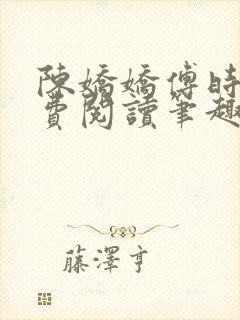 陳嬌嬌傅時
費閱讀筆趣
藤澤亨